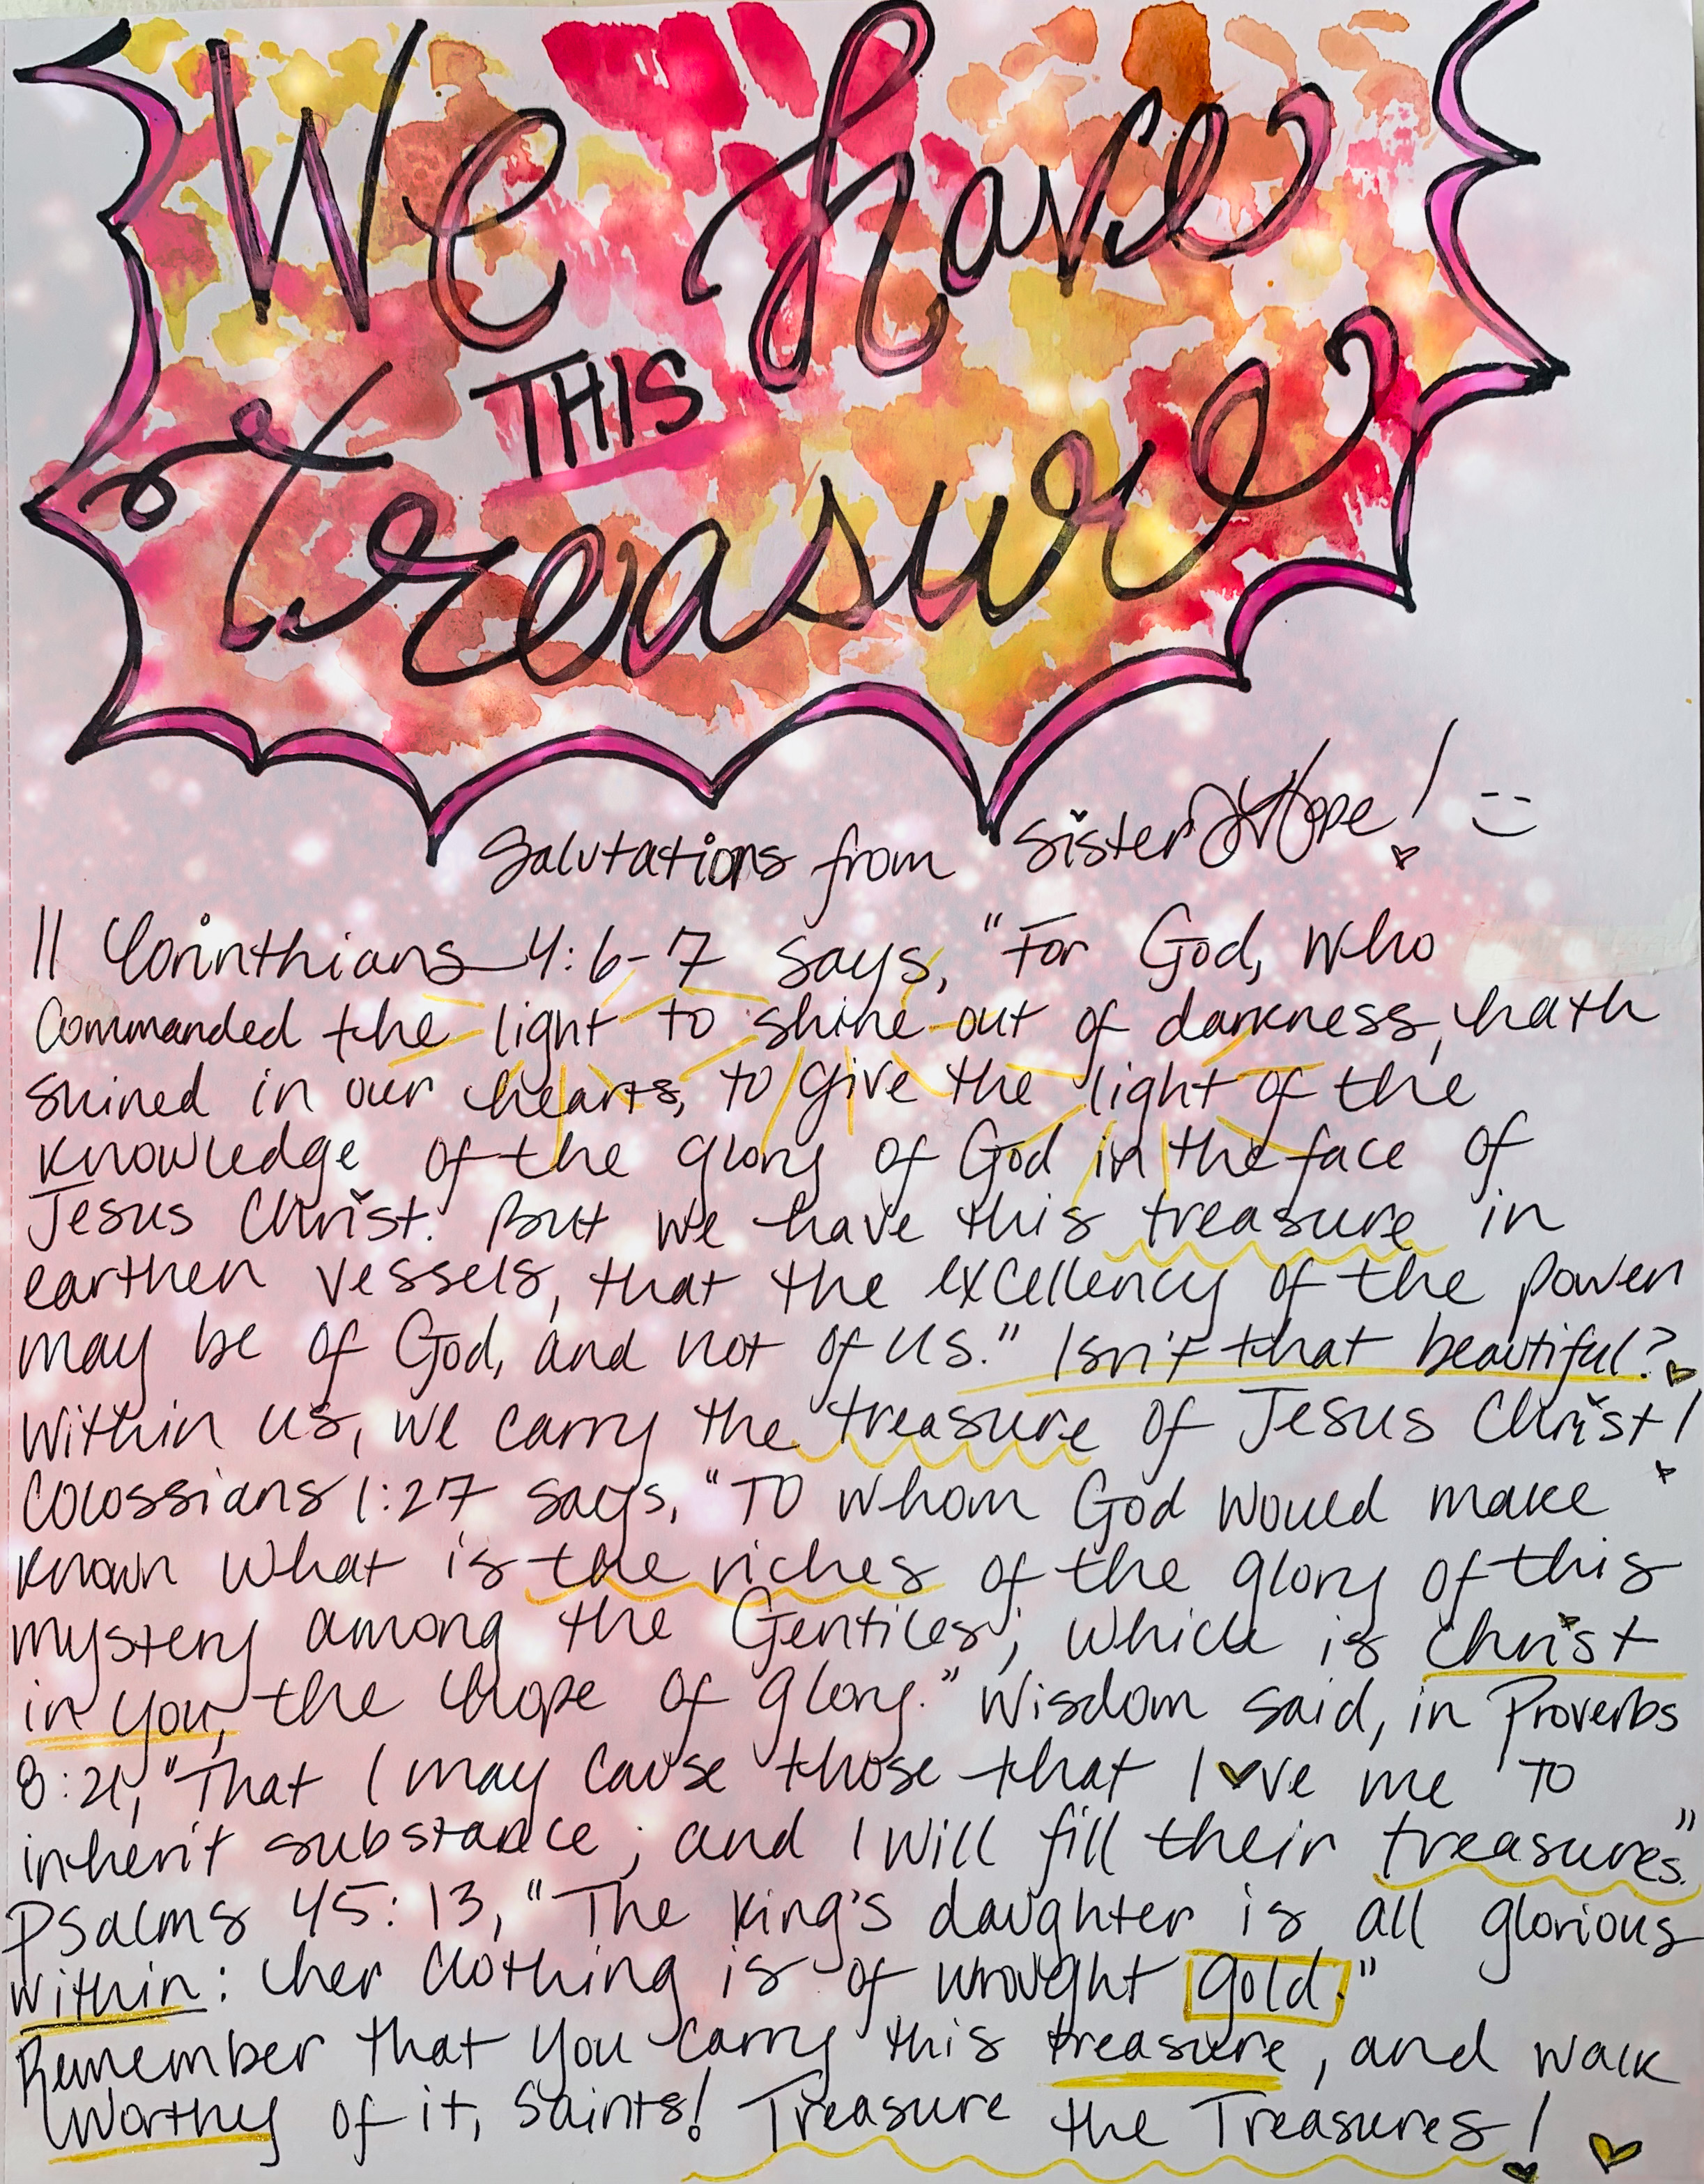 We have
THIS
treasure
Salutations from Sister Hope! :)
II Corinthians 4:6-7 says, "For God, Who
Commanded the light to shine out of darkness, hath
shined in our hearts, to give the light of the
knowledge of the glory of God in the face of
Jesus Christ. But we have this treasure in
earthen vessels, that the excellency of the power
may be of God, and not of us." Isn't that beautiful?
Within us, we carry the treasure of Jesus Christ!
Colossians 1:27 says, "To whom God would make
known what is the riches of the glory of this
mystery among the Gentiles; which is Christ
in you, the hope of glory." Wisdom said, in Proverbs
8:21, "That I may cause those that l♥ve me to
inherit substance; and I will fill their treasures."
Psalms 45:13, "The King's daughter is all glorious
within: her clothing is of wrought gold."
Remember that you carry this treasure, and walk
worthy of it, Saints! Treasure the Treasures!